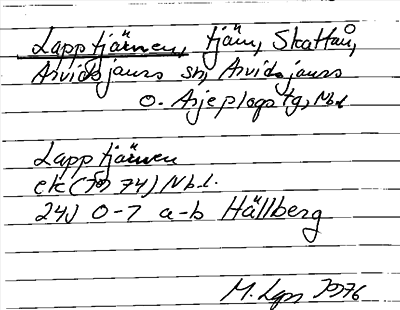 Lapptjärnen, tjärn, Skattån,
Arvidsjaurs sn, Arvidsjaurs
o. Arjeplogs tg, Nbl
Lapptjärnen
ek (Top 74) Nbl.
24J 0-7 a-b Hällberg
M. Lgn 1976